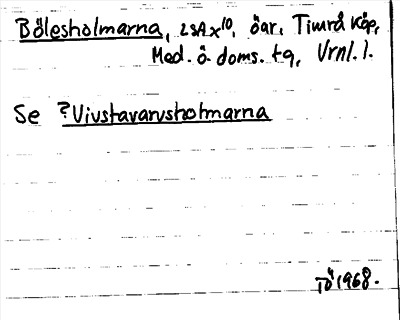 Bölesholmarna, 2SAx10, öar, Timrå Köp,
Med. ö doms. tg, Vrnl. l.
Se ?Vivstavarvsholmarna
1968.